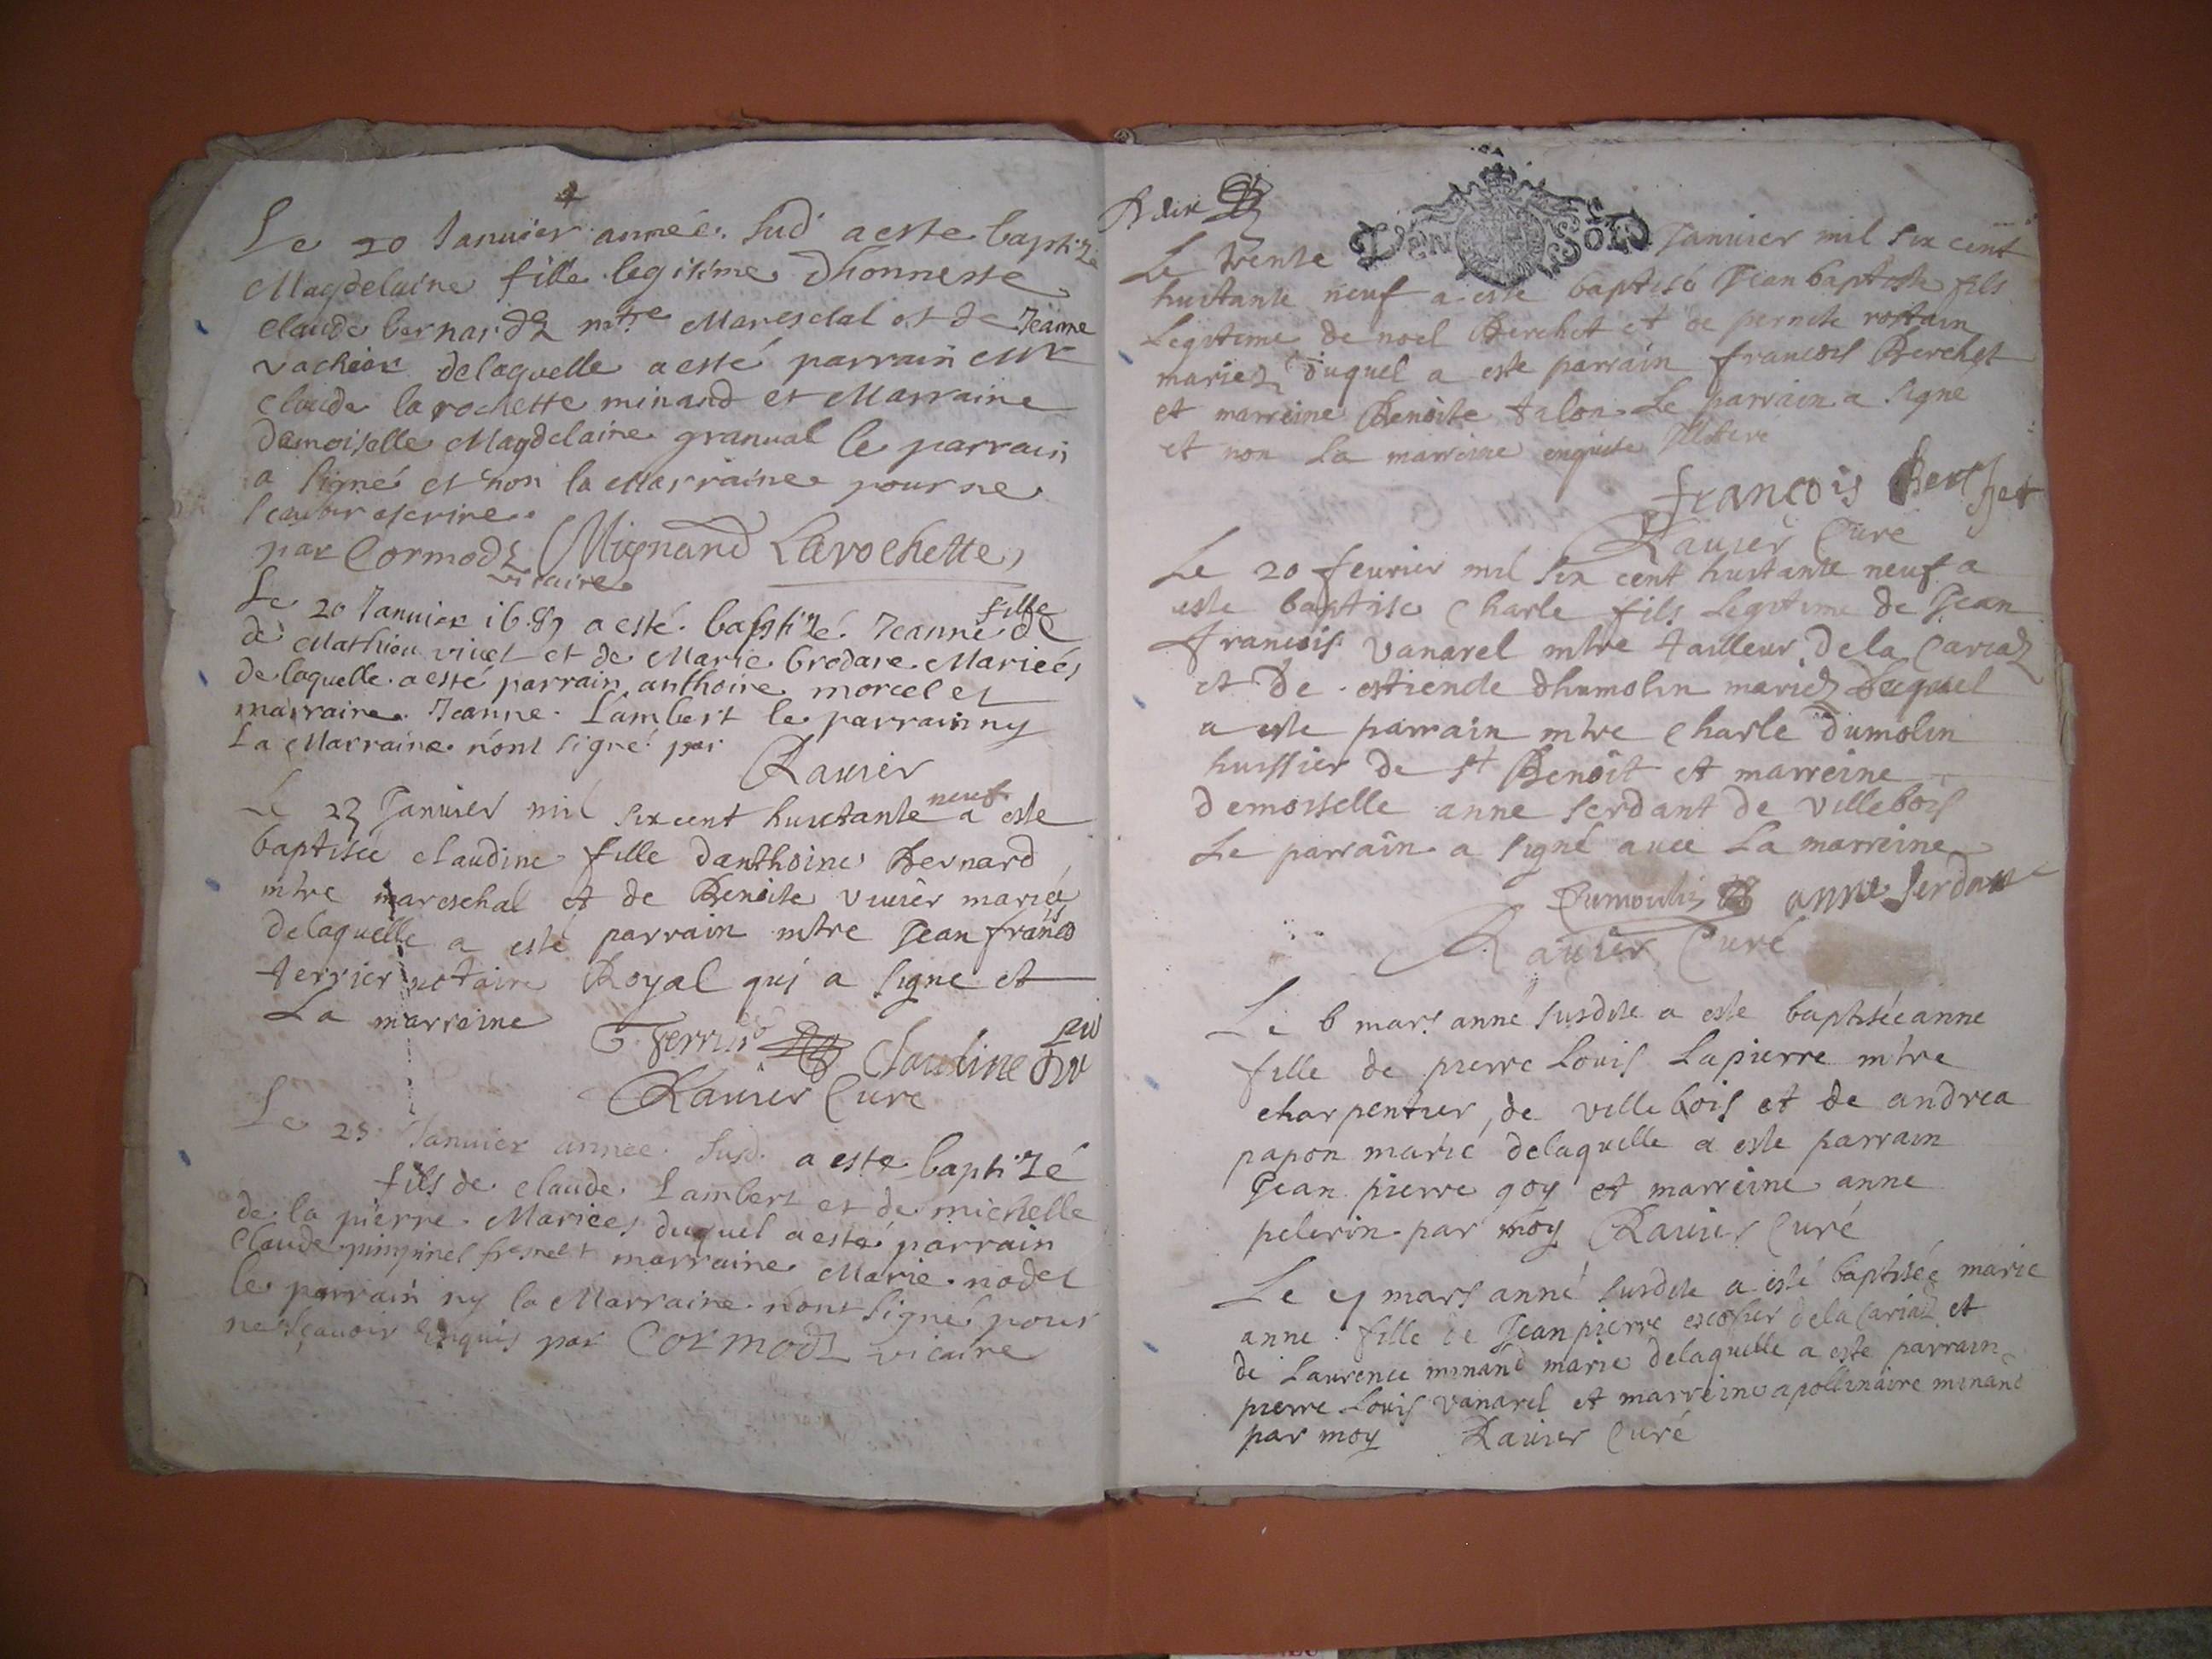 Le 20 Januier anneé Sud a este baptize
Magdelaine fille legitime dhonneste
claude bernardz mtre Mareschal et de Jeanne
vachier delaquelle a esté parrain
claude larochette minand et Marraine
damoiselle Magdelaine granual le parrain
a signé et non la Marraine pour ne
scauoir escrire
par Cormodz Mignand Larochette
vicaire
Le 20 Januier 1689 a esté baptizé Jeanne fille
de Mathieu viuet et de Marie brodare Marieés
de laquelle a esté parrain anthoine morcel et
marraine Jeanne Lambert le parrain ny
La Marraine nont signé par
Rauier
Le 23 Januier mil six cent huictante neuf a este
baptisée claudine fille danthoine Bernard
mtre mareschal et de Benoite viuier mariés
delaquelle a esté parrain mtre Jean francois
terrier notaire Royal qui a signe et
La marreine
Claudine
Rauier Curé
Le 25 Januier annee Susd. a este baptizé
fils de claude Lambert et de michelle
de la pierre Mariees duquel a esté parrain
Claude pimpinel et marraine Marie nodet
le parrain ny la Marraine nont signé pour
ne sçauoir enquis par Cormodz vicaire
A dix
DEN SOLS
Le trente Januier mil six cent
huitante neuf a este baptisé Jean baptiste fils
Legitime de noel Berchet et de pernete rostain
mariez duquel a este parrain francois Berchet
et marreine Benoite talon Le parrain a signe
et non La marreine enquise
francois Berthet
Rauier Curé
Le 20 feurier mil six cent huitante neuf a
este baptise Charle fils Legitime de Jean
francois vanarel mtre tailleur de la Cariaz
et de estiende dhumolin mariez duquel
a este parrain mtre Charle dumolin
huissier de st Benoit et marreine
demoiselle anne serdant de villebois
Le parrain a signé auec La marreine
Dumoulin anne serdant
Rauier Curé
Le 6 mars anné susdite a este baptisée anne
fille de pierre Louis Lapierre mtre
charpentier, de villebois et de andrea
papon marié delaquelle a este parrain
Jean pierre goy et marreine anne
pelerin par moy Rauier Curé
Le mars anné susdite a esté baptisée marie
anne fille de Jean pierre escosier dela Cariaz et
de Laurence minand marie delaquelle a este parrain
pierre Louis vanarel et marreine apollinaire minand
par moy Rauier Curé